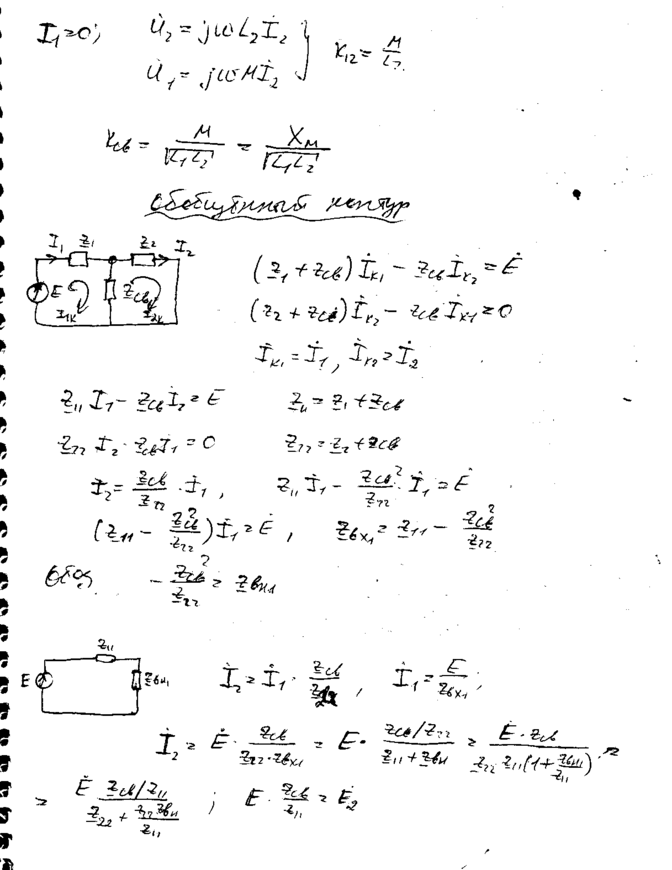 I₁=0; U̇₂ = jωL₂İ₂ } K₁₂ = M/L₂
U̇₁ = jωMİ₂
Kсв = M/√(L₁L₂) = Xм/√(L₁L₂)
Обобщённый контур
I₁ Z₁ Z₂ I₂
E I₁к Zсв I₂к
(Z₁ + Zсв) İк₁ − Zсв İк₂ = Ė
(Z₂ + Zсв) İк₂ − Zсв İк₁ = 0
İк₁ = İ₁, İк₂ = İ₂
Z₁₁ I₁ − Zсв İ₂ = E Z₁₁ = Z₁ + Zсв
Z₂₂ I₂ - Zсв I₁ = 0 Z₂₂ = Z₂ + Zсв
İ₂ = Zсв/Z₂₂ · İ₁, Z₁₁ İ₁ − Zсв²/Z₂₂ İ₁ = Ė
(Z₁₁ − Zсв²/Z₂₂) İ₁ = Ė, Zвх₁ = Z₁₁ − Zсв²/Z₂₂
− Zсв²/Z₂₂ = Zвн₁
E Z₁₁ Zвн₁
İ₂ = İ₁ · Zсв/Z₂₂, İ₁ = E/Zвх₁;
İ₂ = Ė · Zсв/(Z₂₂·Zвх₁) = E · (Zсв/Z₂₂)/(Z₁₁ + Zвн) = Ė·Zсв/(Z₂₂·Z₁₁(1 + Zвн₁/Z₁₁)) =
= Ė (Zсв/Z₁₁)/(Z₂₂ + Z₂₂Zвн/Z₁₁); E · Zсв/Z₁₁ = Ė₂